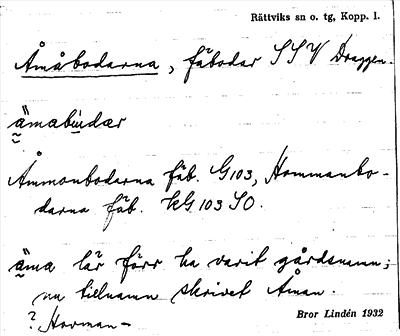 Rättviks sn o. tg, Kopp. l.
Åmåbodarna, fäbodar SSV Draggen.
ämabindær
Åmmonboderna fäb. G103, Hommanbo-
darna fäb. kG 103 SO.
äma lär förr ha varit gårdsnamn;
nu tillnamn skrivet Åman.
? Horman-
Bror Lindén 1932